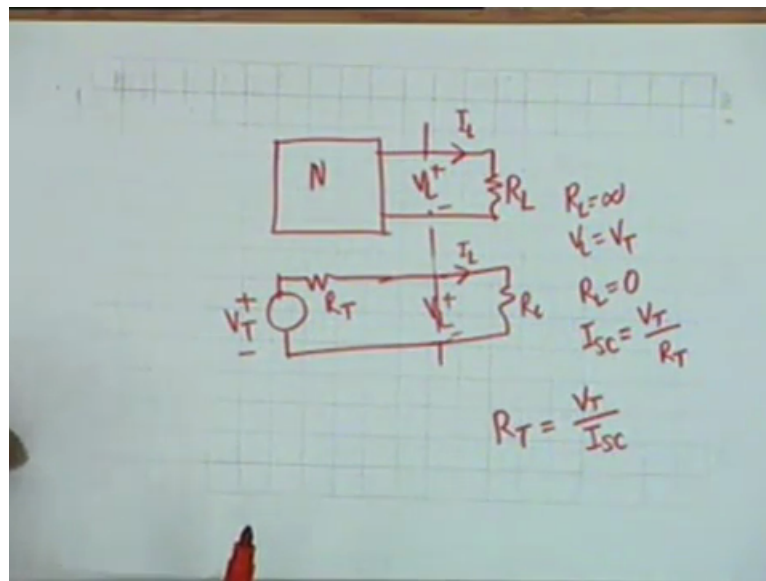 I_L
N
V_L
+
-
R_L
R_L = ∞
V_L = V_T
I_L
V_T
+
-
R_T
V_L
+
-
R_L
R_L = 0
I_SC = V_T / R_T
R_T = V_T / I_SC